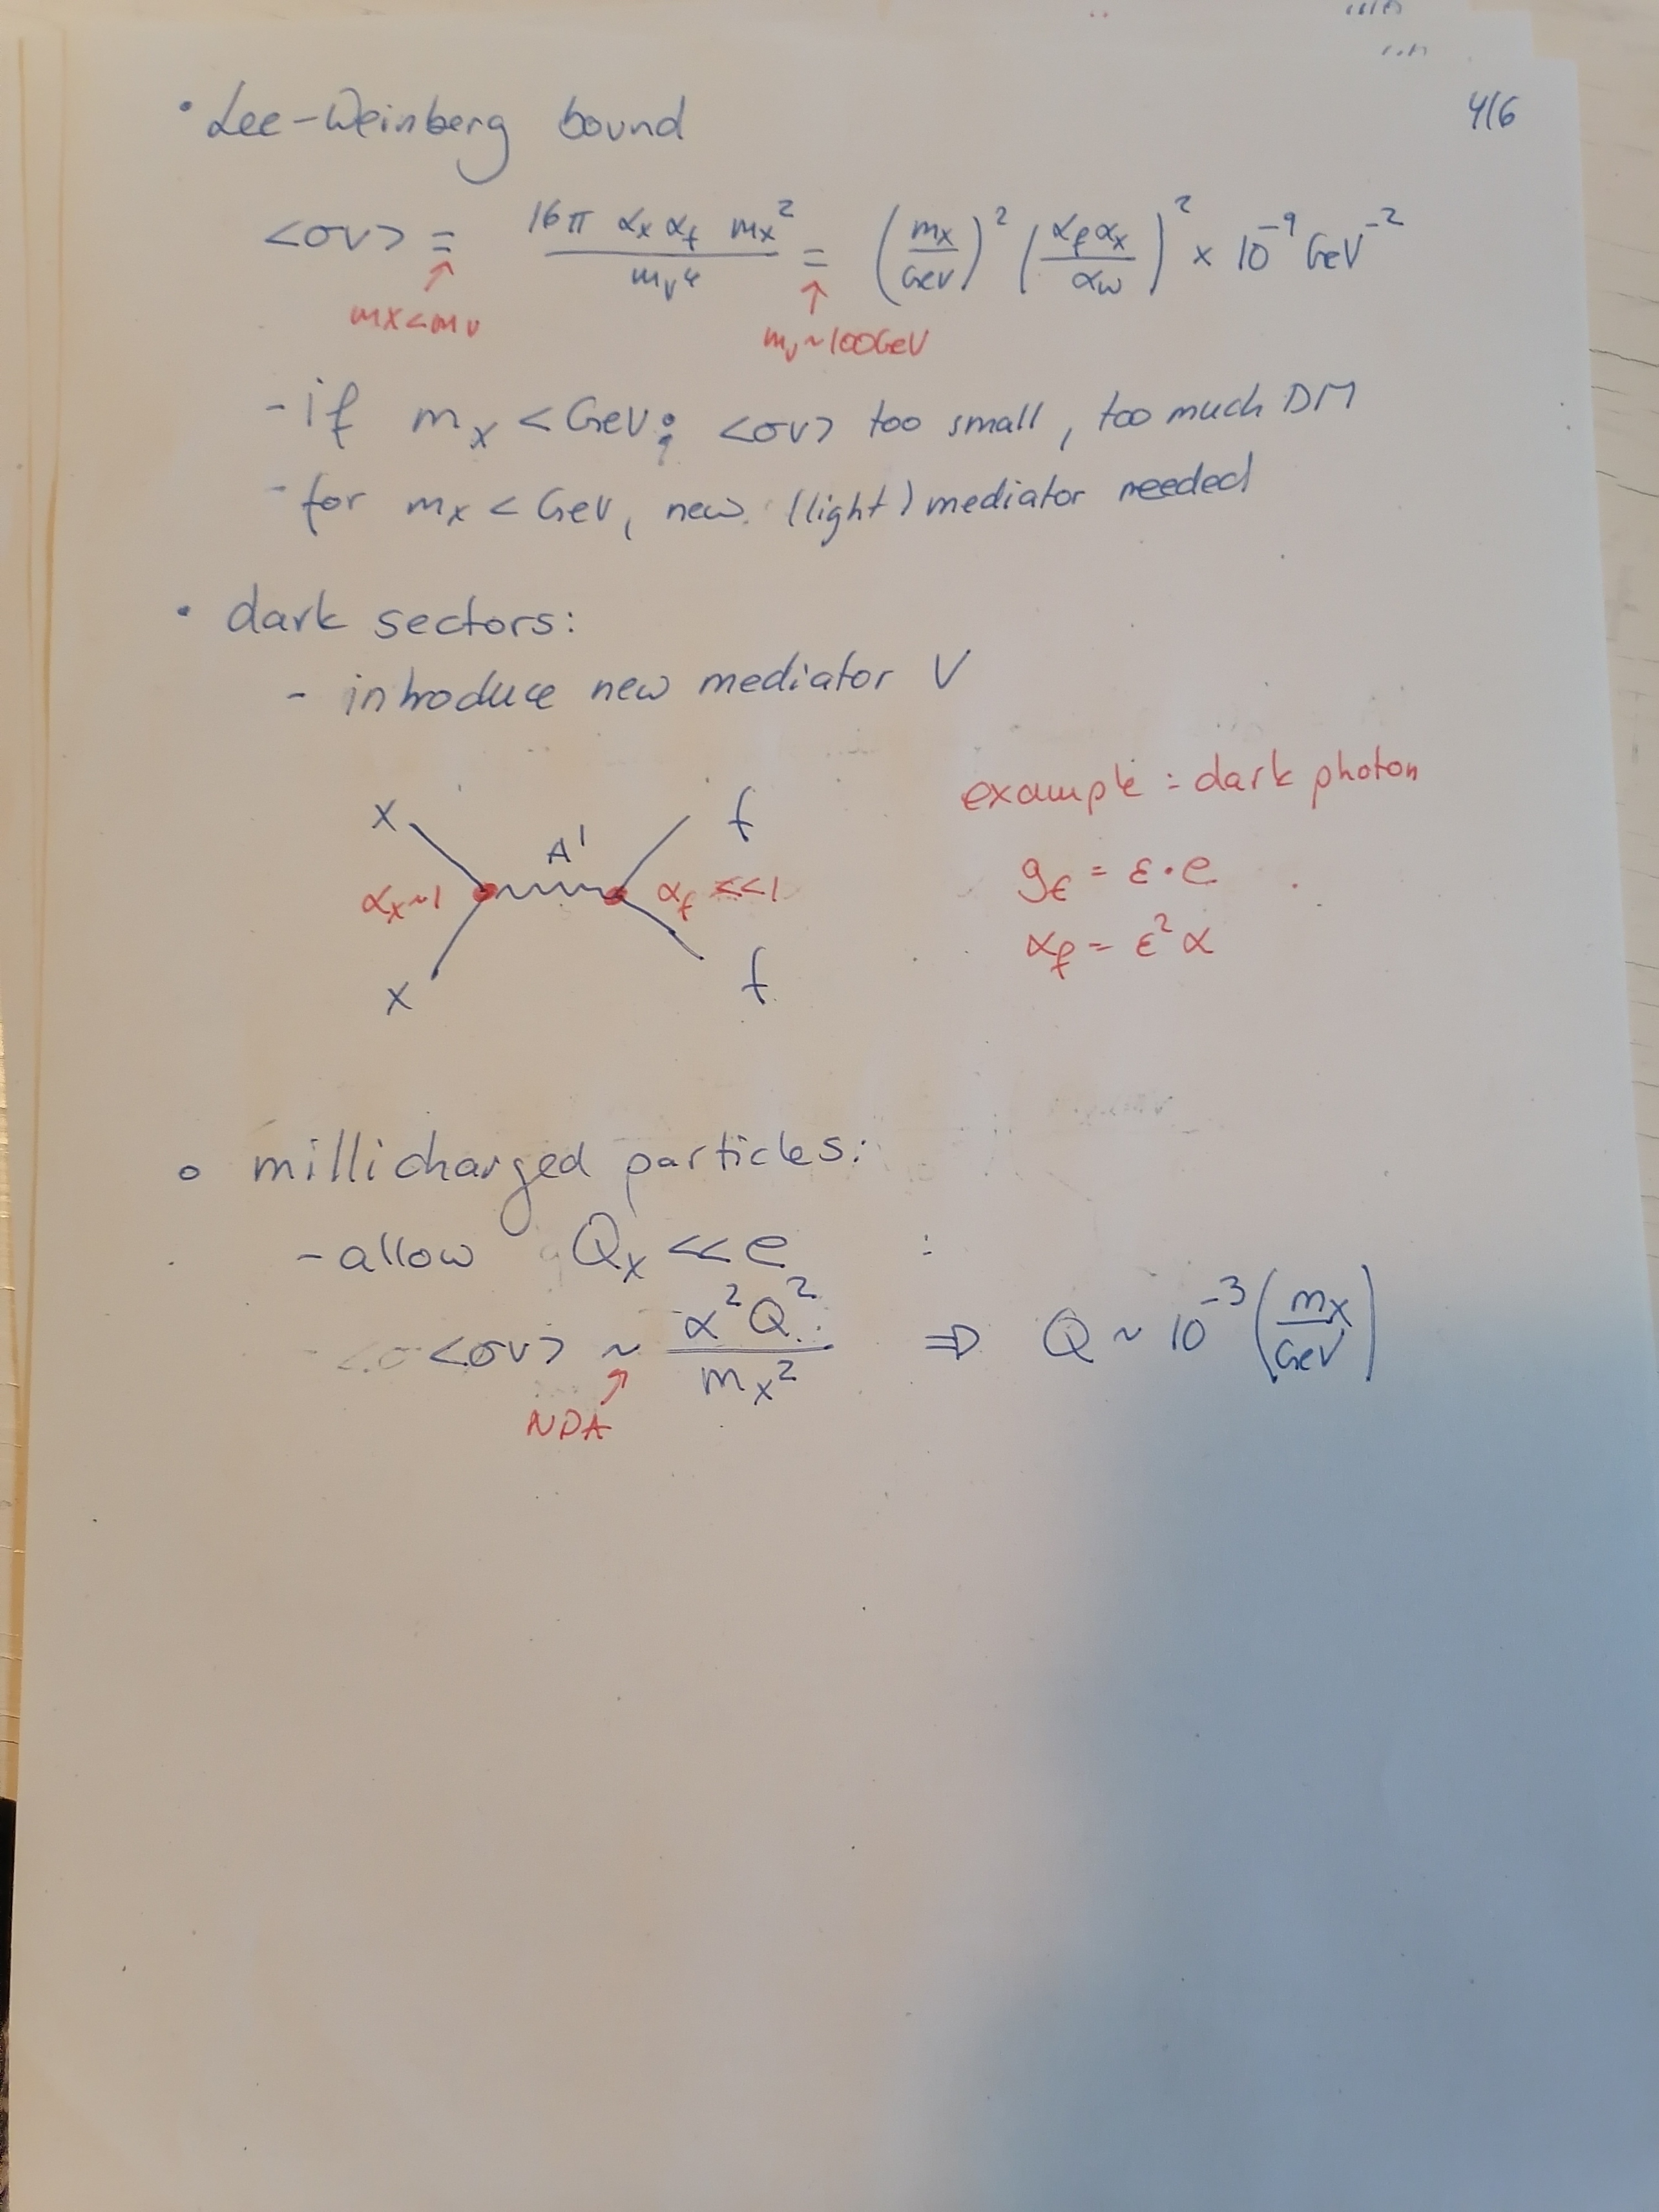 4/6
• Lee-Weinberg bound
<σv> = 16π αx αf mx² / mv⁴ = (mx/GeV)² (αf αx/αw)² × 10⁻⁹ GeV⁻²
↑ mx<mv
↑ mv~100GeV
- if mx < GeV: <σv> too small, too much DM
- for mx < GeV, new (light) mediator needed
• dark sectors:
- introduce new mediator V
example: dark photon
x A' f
αx~1 αf <<1
gf = ε·e
αf = ε²α
x f
• millicharged particles:
- allow Qx << e
<σv> ~ α²Q² / mx² ⇒ Q ~ 10⁻³ (mx/GeV)
↑ NDA